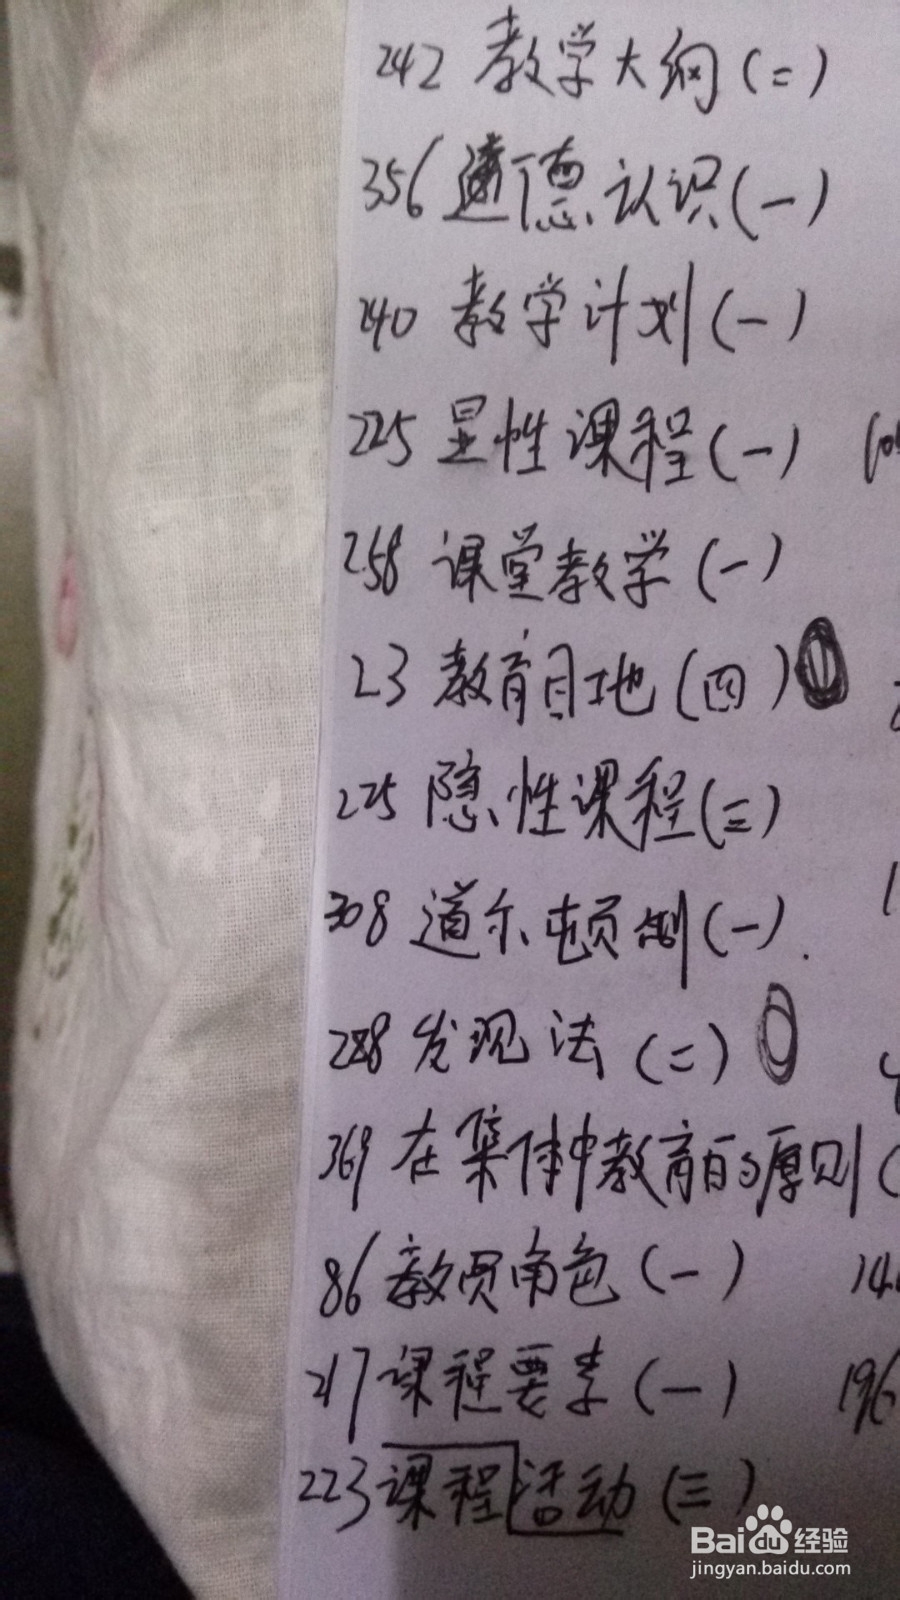 242 教学大纲(二)
356 道德认识(一)
240 教学计划(一)
225 显性课程(一)
258 课堂教学(一)
23 教育目地(四)
225 隐性课程(三)
308 道尔顿制(一)
288 发现法(二)
369 在集体中教育的原则(
86 教员角色(一)
217 课程要素(一)
196
223 课程活动(三)
Baidu经验
jingyan.baidu.com